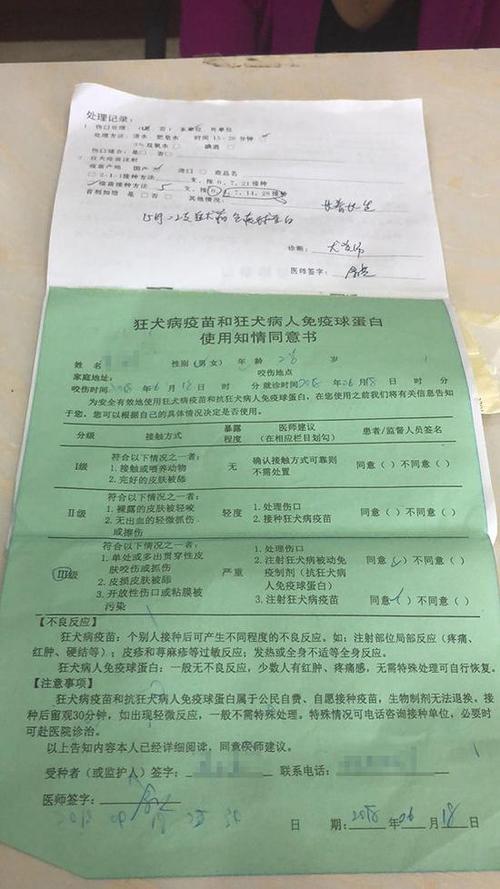 处理记录:
处理方法: 清水 肥皂水 时间 15-20分钟
3%双氧水 □ 碘酒 □
伤口缝合: 是□ 否□
狂犬疫苗注射
疫苗产地 国产 进口 □ 商品名
□ 2-1-1接种方法 支, 按 0, 7, 21接种
疫苗接种方法 5 支, 按 0, 3, 7, 14, 28接种
首剂加倍 是 □ 否 □ 其他情况:
诊断: 犬咬伤
医师签字:
狂犬病疫苗和狂犬病人免疫球蛋白
使用知情同意书
姓名 性别(男女) 年龄 26 岁
家庭地址: 咬伤地点
咬伤时间 2018 年 6 月 18 日 时 分 就诊时间 2018 年 06 月 18 日 时 分
为安全有效地使用狂犬病疫苗和抗狂犬病人免疫球蛋白,在您使用之前我们将有关信息告知
于您。您可以根据自己的具体情况决定是否使用。
分级 接触方式 暴露程度 医师建议(在相应栏目划勾) 患者/监督人员签名
Ⅰ级 符合以下情况之一者: 无 确认接触方式可靠则不需处置 同意( )不同意( )
1.接触或喂养动物
2.完好的皮肤被舔
Ⅱ级 符合以下情况之一者: 轻度 1.处理伤口 同意( )不同意( )
1.裸露的皮肤被轻咬 2.接种狂犬病疫苗
2.无出血的轻微抓伤
或擦伤
Ⅲ级 符合以下情况之一者: 严重 1.处理伤口
1.单处或多出贯穿性皮 2.注射狂犬病被动免 同意( )不同意( )
肤咬伤或抓伤 疫制剂(抗狂犬病
2.皮损皮肤被舔 人免疫球蛋白)
3.开放性伤口或粘膜被 3.注射狂犬病疫苗 同意( )不同意( )
污染
【不良反应】
狂犬病疫苗:个别人接种后可产生不同程度的不良反应。如:注射部位局部反应(疼痛、
红肿、硬结等);皮疹和荨麻疹等过敏反应;发热或全身不适等全身反应。
狂犬病人免疫球蛋白:一般无不良反应,少数人有红肿、疼痛感,无需特殊处理可自行恢复。
【注意事项】
狂犬病疫苗和抗狂犬病人免疫球蛋白属于公民自费、自愿接种疫苗,生物制剂无法退换。接
种后留观30分钟,如出现轻微反应,一般不需特殊处理。特殊情况可电话咨询接种单位,必要时
可赴医院诊治。
以上告知内容本人已经详细阅读,同意医师建议。
受种者(或监护人)签字: 联系电话:
医师签字:
日 期: 2018 年 06 月 18 日